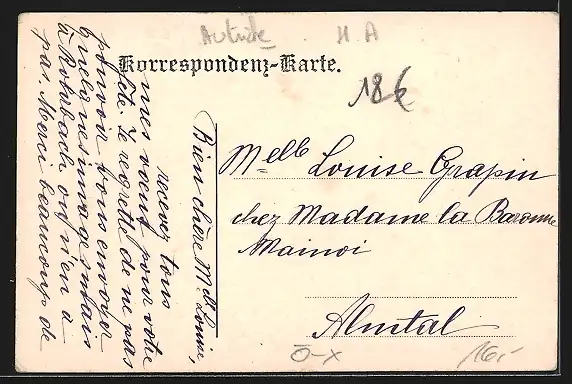 Autriche H. A
Korrespondenz-Karte.
18€
Melle Louise Grapin
chez Madame la Baronne
Mainoi
Almtal
Bien chère Mlle Louise,
recevez tous
mes voeux pour votre
fête. Je regrette de ne pas
pouvoir vous envoyer
mais
à Rohrbach on n'en a
pas. Merci beaucoup de
O-X
16,-